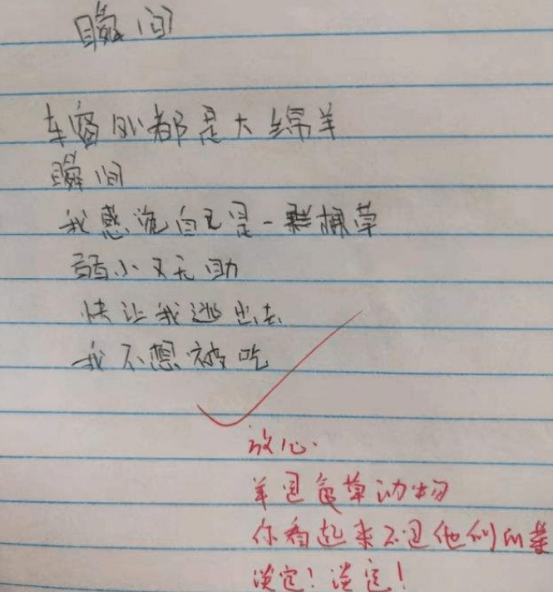 瞬间
车窗外都是大绵羊
瞬间
我感觉自己是一棵小草
弱小又无助
快让我逃出去
我不想被吃
放心.
羊是食草动物
你看起来不是他们的菜
淡定!淡定!